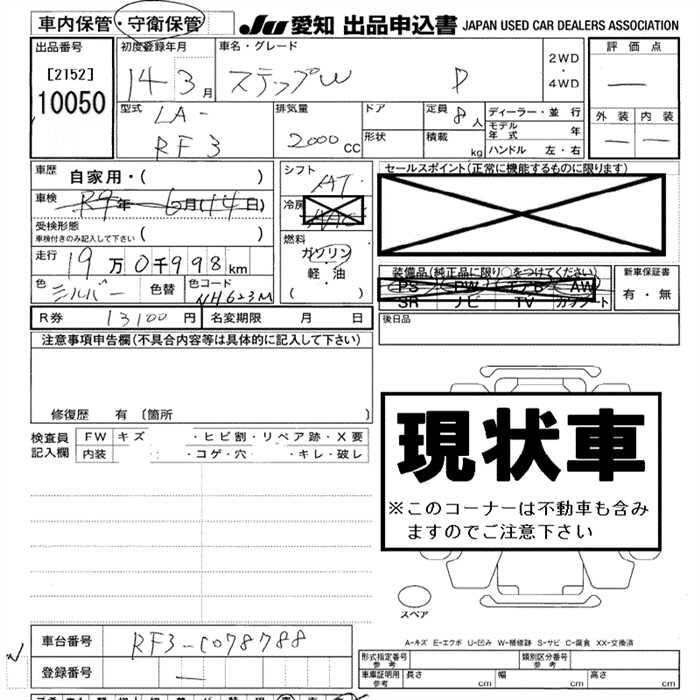 車内保管・守衛保管 JU 愛知 出品申込書 JAPAN USED CAR DEALERS ASSOCIATION
出品番号 初度登録年月 車名・グレード 評価点
[2152] 14 3月 ステップW D 2WD・4WD —
10050
型式 排気量 ドア 定員 8人 ディーラー・並行 外装 内装
LA- モデル年式 年 — —
RF3 2000cc 形状 積載 kg ハンドル 左・右
車歴 自家用・( ) シフト AT セールスポイント(正常に機能するものに限ります)
車検 R4年 6月14日) 冷房
受検形態
車検付きのみ記入して下さい ( ) 燃料
走行 19万0千998km ガソリン
軽・油
( ・ ) 装備品(純正品に限り○をつけてください) 新車保証書
色 シルバー 色替 色コード NH623M PS PW エアB AW 有・無
SR ナビ TV カワシート
R券 13100円 名変期限 月 日 後日品
注意事項申告欄(不具合内容等は具体的に記入して下さい)
修復歴 有〔箇所 〕
検査員 FW キズ ・ヒビ割・リペア跡・X要
記入欄 内装 ・コゲ・穴 ・キレ・破レ
現状車
※このコーナーは不動車も含み
ますのでご注意下さい
スペア
A-キズ E-エクボ U-凹み W-補修跡 S-サビ C-腐食 XX-交換済
車台番号 RF3-C078788
登録番号 —
型式指定番号 参考 類別区分番号 参考
車庫証明用 参考 長さ 幅 高さ